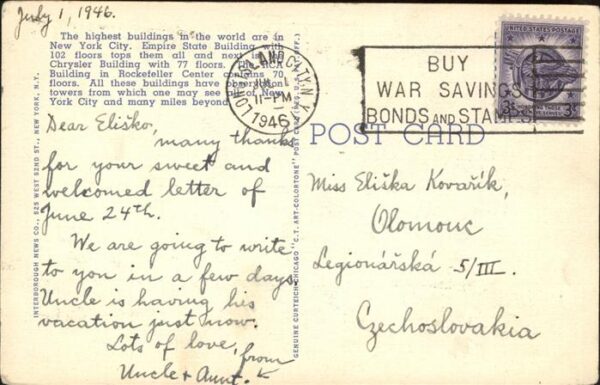 July 1, 1946.
The highest buildings in the world are in
New York City. Empire State Building with
102 floors tops them all and next is
Chrysler Building with 77 floors. The RCA
Building in Rockefeller Center contains 70
floors. All these buildings have observation
towers from which one may see all of New
York City and many miles beyond.
LONG ISLAND CITY, N.Y.
JUL 1
11-PM
1946
BUY
WAR SAVINGS
BONDS AND STAMPS
UNITED STATES POSTAGE
HONORING THOSE
3¢ 3¢
POST CARD
Dear Eliško,
many thanks
for your sweet and
welcomed letter of
June 24th.
We are going to write
to you in a few days.
Uncle is having his
vacation just now.
Lots of love, from
Uncle + Aunt.
Miss Eliška Kovařík,
Olomouc
Legionářská 5/III.
Czechoslovakia
INTERBOROUGH NEWS CO., 525 WEST 52ND ST., NEW YORK, N. Y.
GENUINE CURTEICH-CHICAGO "C.T. ART-COLORTONE" POST CARD (REG. U.S. PAT. OFF.)